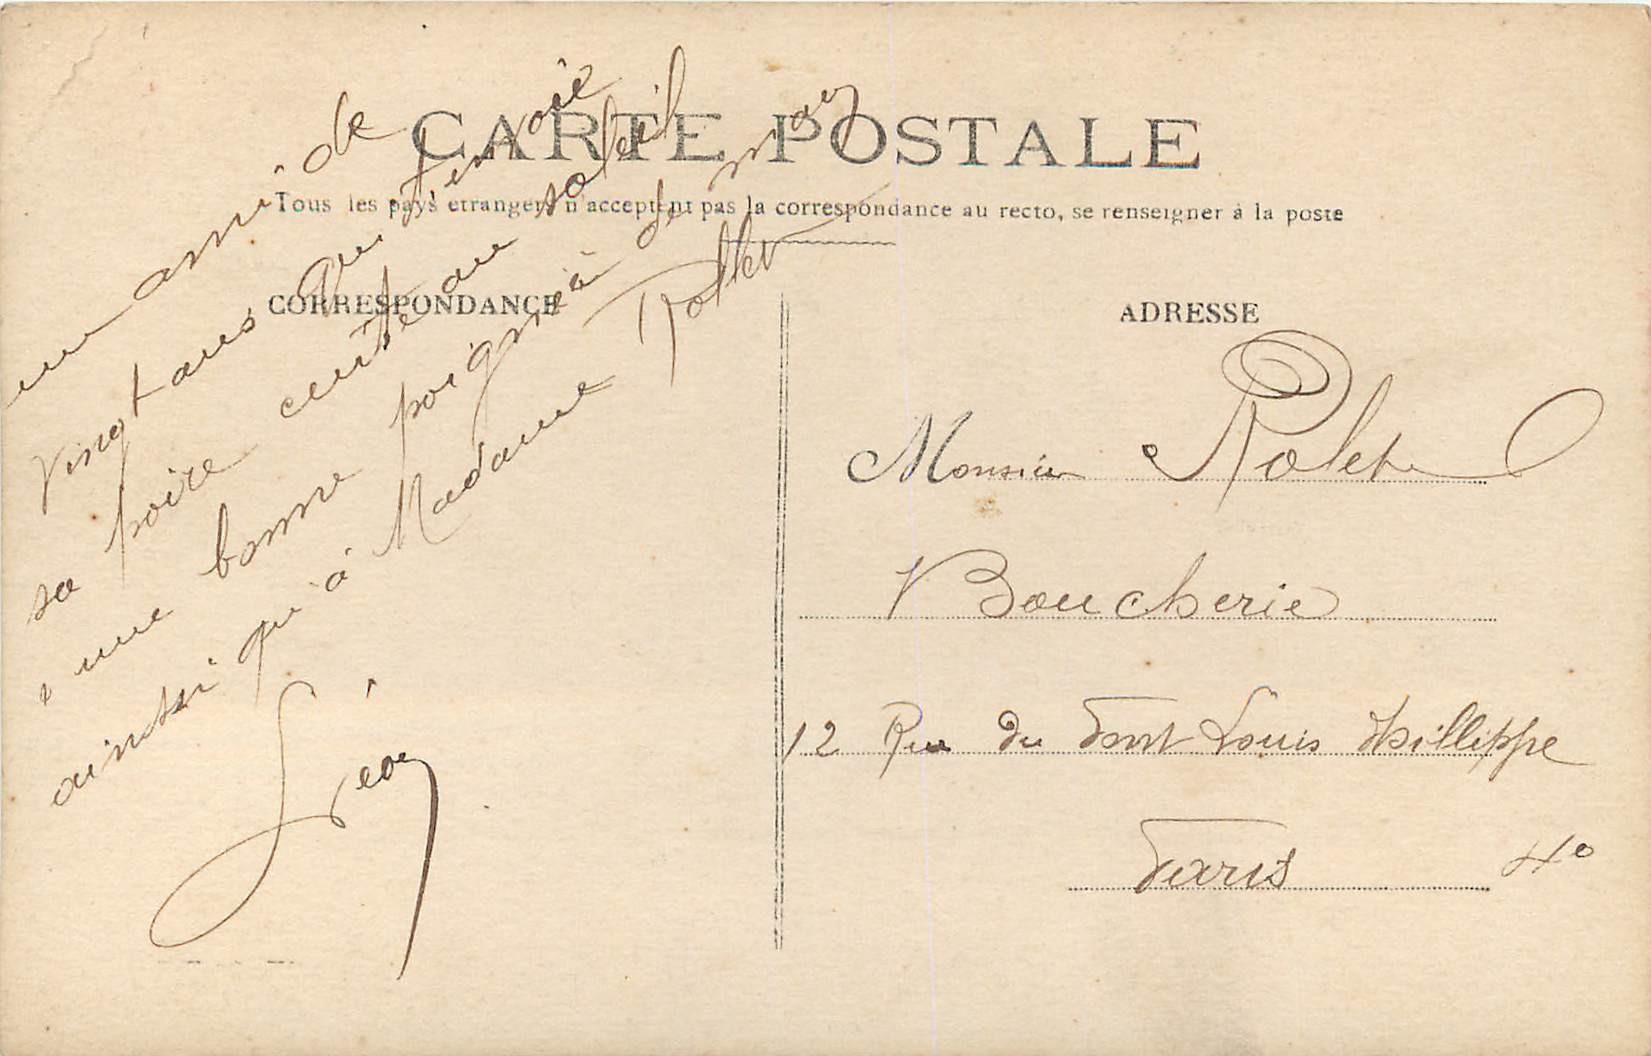 CARTE POSTALE
Tous les pays étrangers n'acceptent pas la correspondance au recto, se renseigner à la poste
CORRESPONDANCE
ADRESSE
un ami de
vingt ans qui t'envoie
sa poire cuite au soleil
une bonne poignée de
ainsi qu'à Madame Rollet
Léon
Monsieur Rolet
Boucherie
12 Rue du Pont Louis Phillippe
Paris 4e